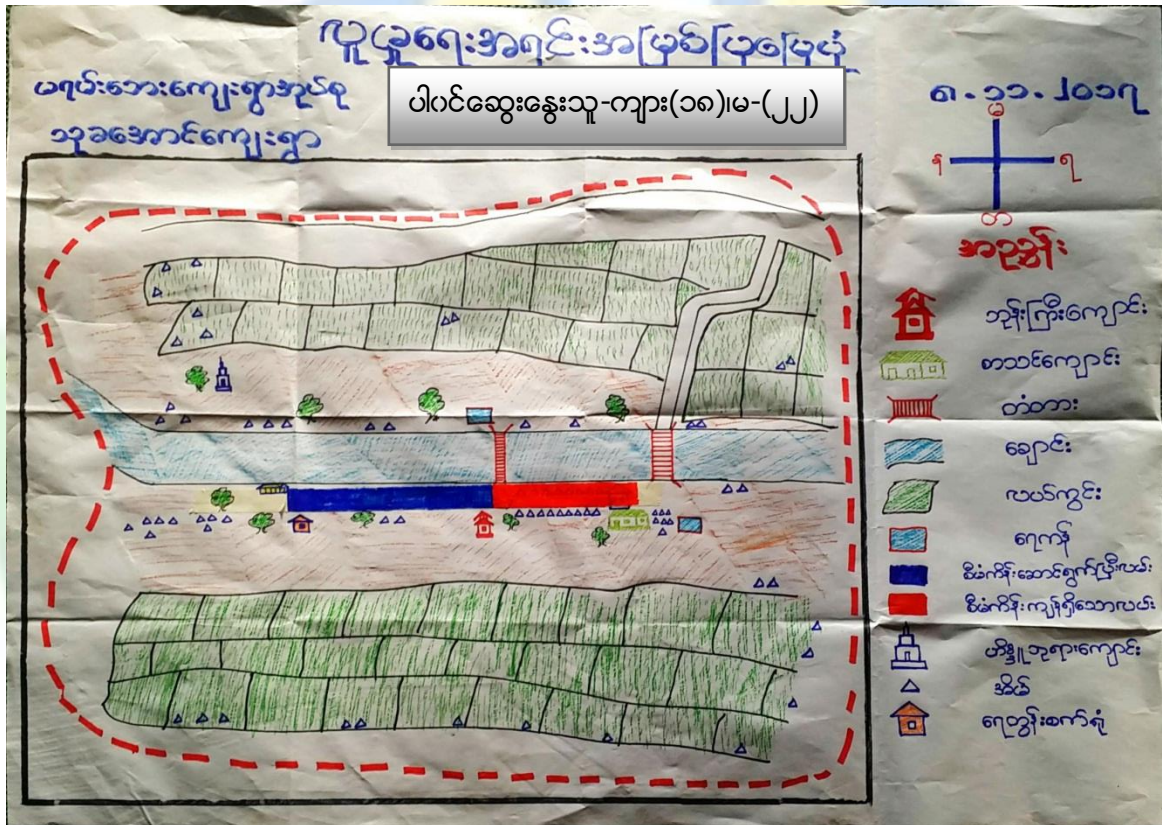 လူမှုရေးအရင်းအမြစ်ပြမြေပုံ
မရမ်းဘေးကျေးရွာအုပ်စု
သုခအောင်ကျေးရွာ
ပါ၀င်ဆွေးနွေးသူ-ကျား(၁၈)၊မ-(၂၂)
၈.၁၁.၂၀၁၇
မ
န
ရ
တ
အညွှန်း
ဘုန်းကြီးကျောင်း
စာသင်ကျောင်း
တံတား
ချောင်း
လယ်ကွင်း
ရေကန်
စီမံကိန်းဆောင်ရွက်ပြီးလမ်း
စီမံကိန်းကျန်ရှိသောလမ်း
ဟိန္ဒူဘုရားကျောင်း
အိမ်
ရေတွန်းစက်ရုံ